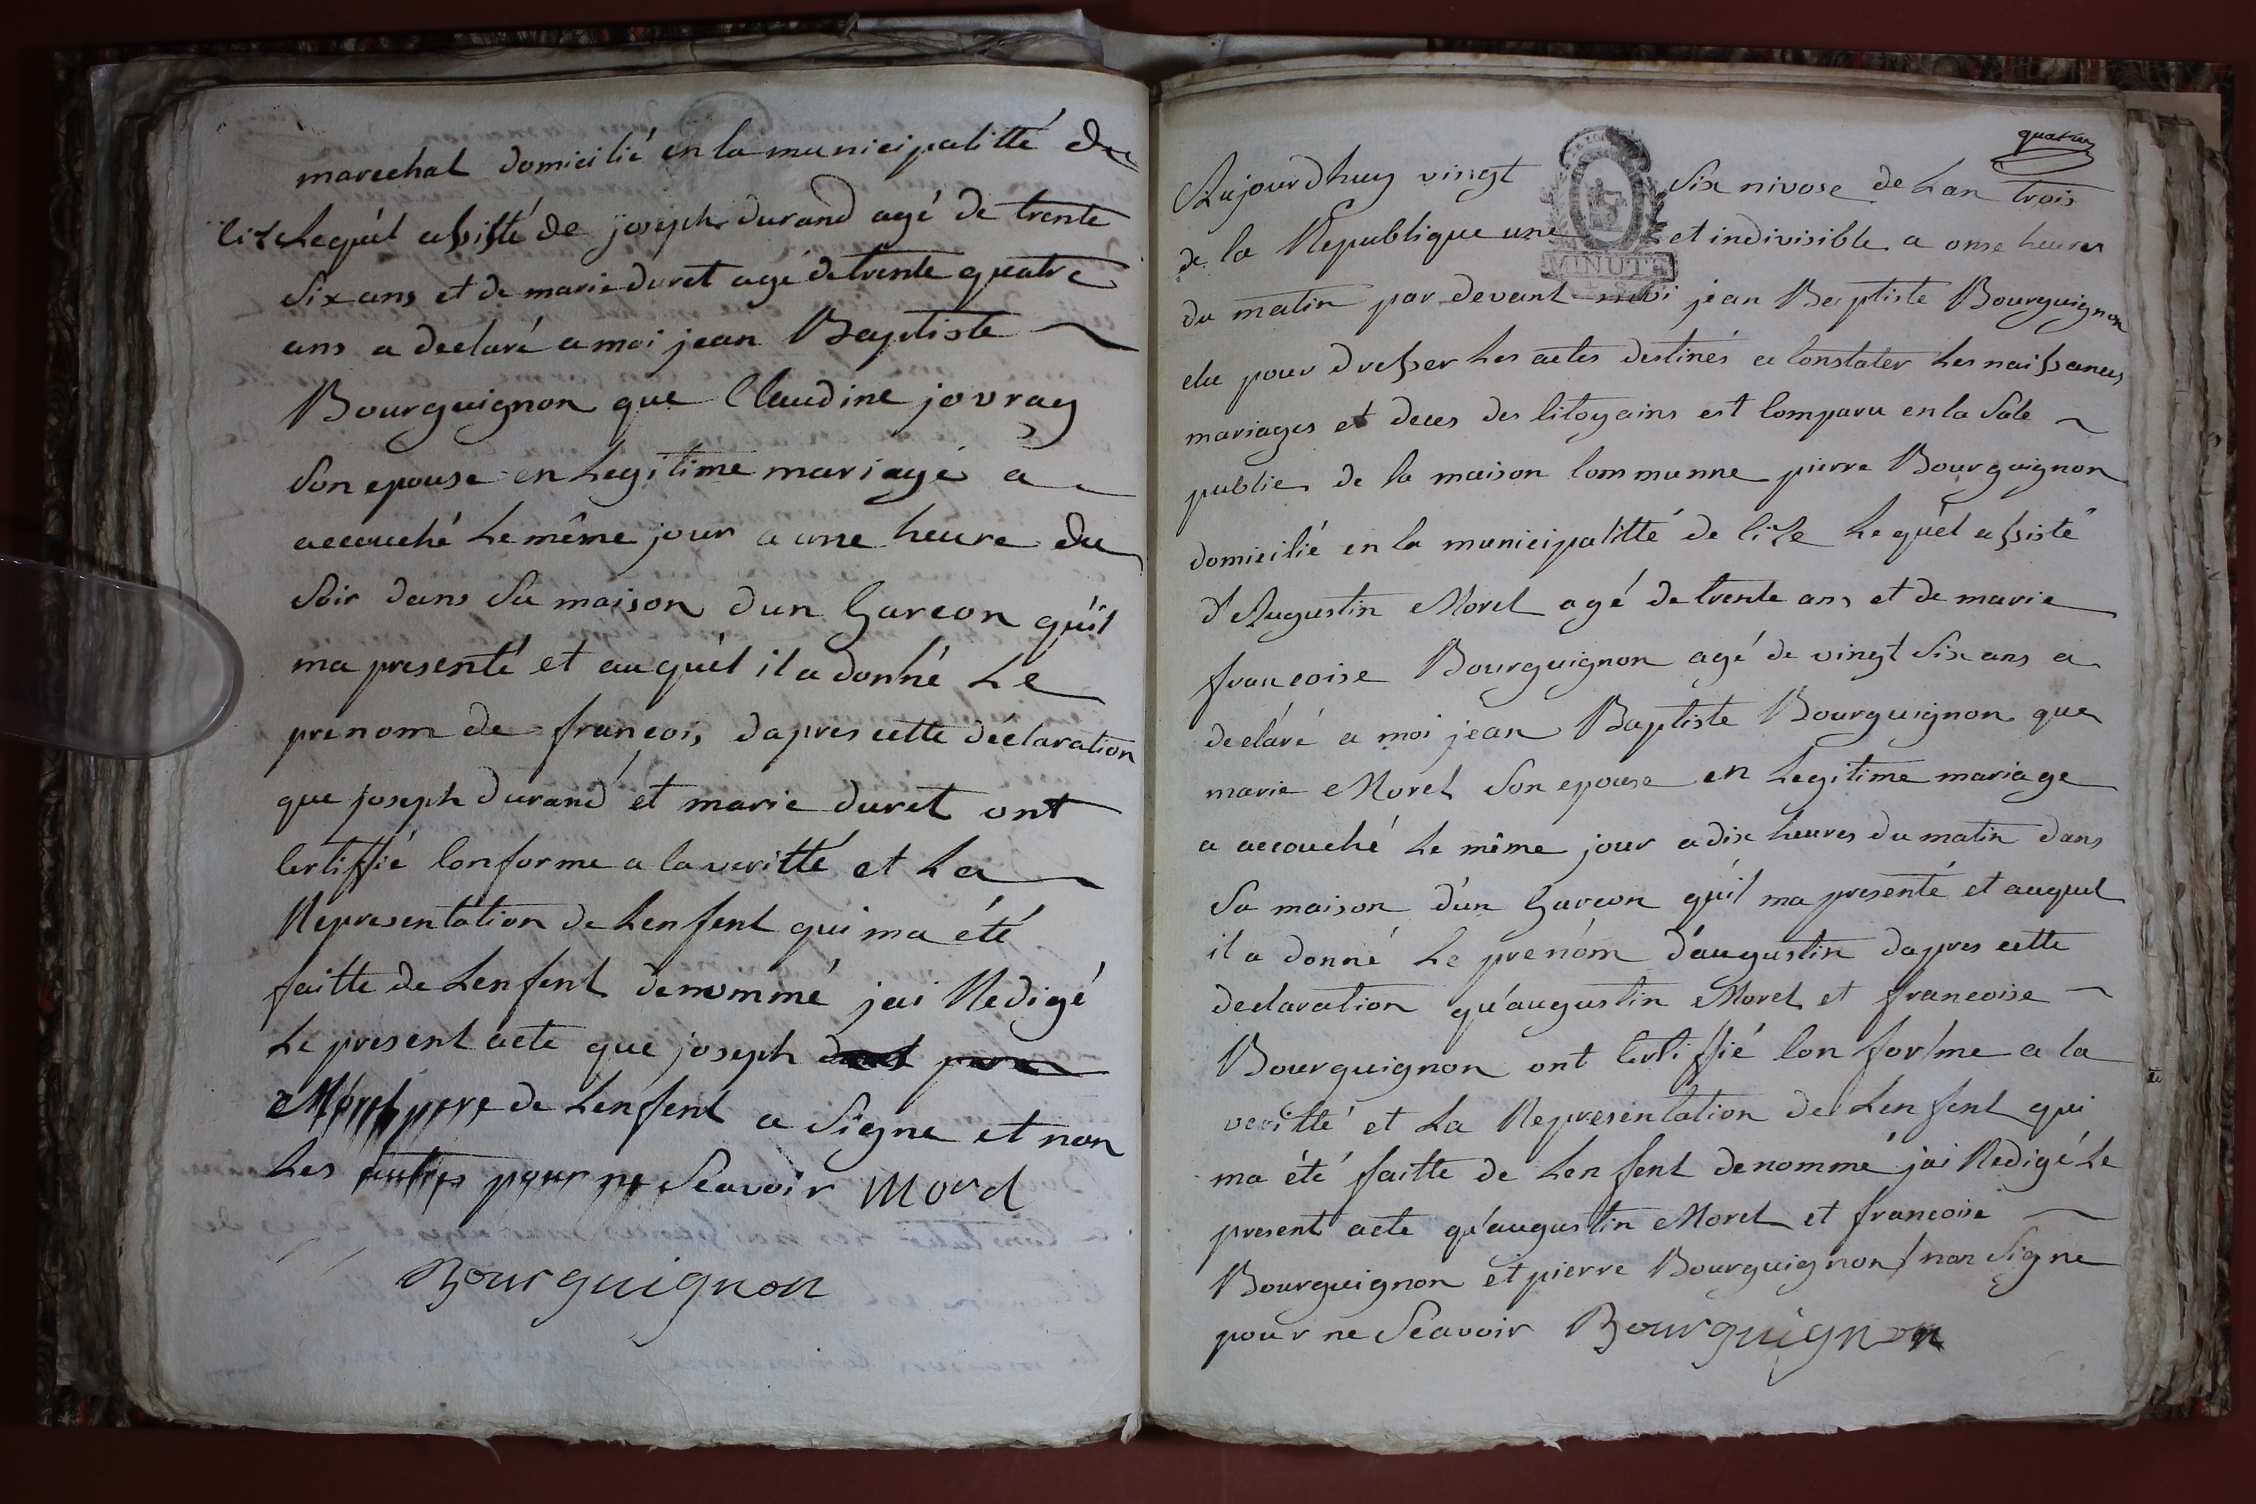 marechal domicilié en la municipalitté de
lizle lequél assisté de joseph durand agé de trente
six ans et de marie duret agé de trente quatre
ans a declaré a moi jean Baptiste
Bourguignon que Claudine jovray
son epouse en legitime mariage a
accouché le même jour a une heure du
soir dans sa maison dun garcon qúil
ma presenté et auquél il a donné le
prenom de françois, dapres cette déclaration
que joseph durand et marie duret ont
certiffié conforme a la veritté et la
Représentation de lenfent qui ma été
faitte de lenfent denommé jai Redigé
le present acte que joseph
Morel pere de lenfent a signe et non
les autres pour ne scavoir Morel
Bourguignon
quatre
Aujourdhuy vingt six nivose de lan trois
de la Republique une et indivisible a onse heures
MINUTE
du matin par devant moi jean Baptiste Bourguignon
elu pour dresser les actes destinés a constater les naissances
mariages et deces des citoyains est comparu en la sale
publie de la maison commune pierre Bourguignon
domicilié en la municipalitté de lizle lequél assisté
d'Augustin Morel agé de trente ans et de marie
francoise Bourguignon agé de vingt six ans a
declaré a moi jean Baptiste Bourguignon que
marie Morel son epouse en legitime mariage
a accouché le même jour a dix heures du matin dans
sa maison d'un garcon qúil ma presenté et auquel
il a donné le prenóm d'augustin dapres cette
declaration qu'augustin Morel et francoise
Bourguignon ont certiffié conforme a la
veritté et la Representation de lenfent qui
ma été faitte de lenfent denommé jai Redigé le
present acte qu'augustin Morel et francoise
Bourguignon et pierre Bourguignon non signe
pour ne scavoir Bourguignon